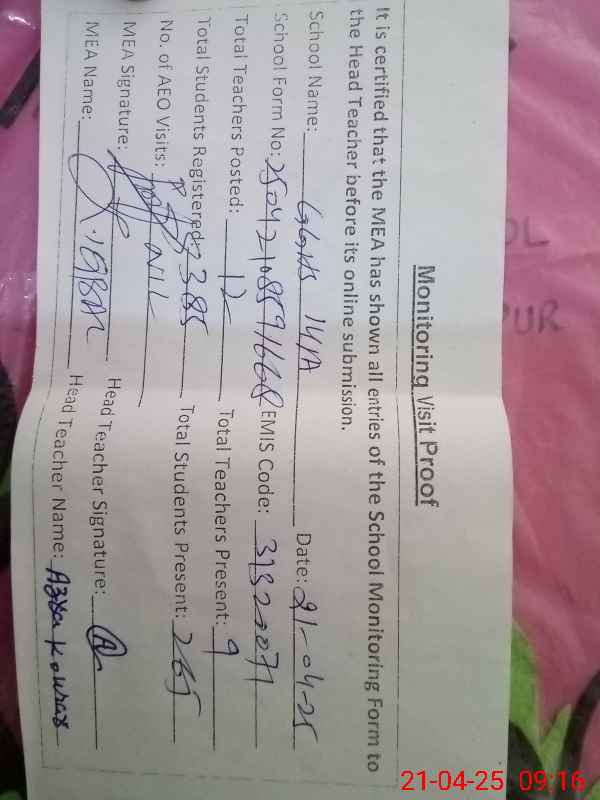 Monitoring Visit Proof
It is certified that the MEA has shown all entries of the School Monitoring Form to
the Head Teacher before its online submission.
School Name: 141A Date: 21-04-25
School Form No: EMIS Code:
Total Teachers Posted: 12 Total Teachers Present: 9
Total Students Registered: 385 Total Students Present: 265
No. of AEO Visits: NIL
MEA Signature: Head Teacher Signature:
MEA Name: IQBAL Head Teacher Name: Azra Kousar
OL
PUR
21-04-25 09:16